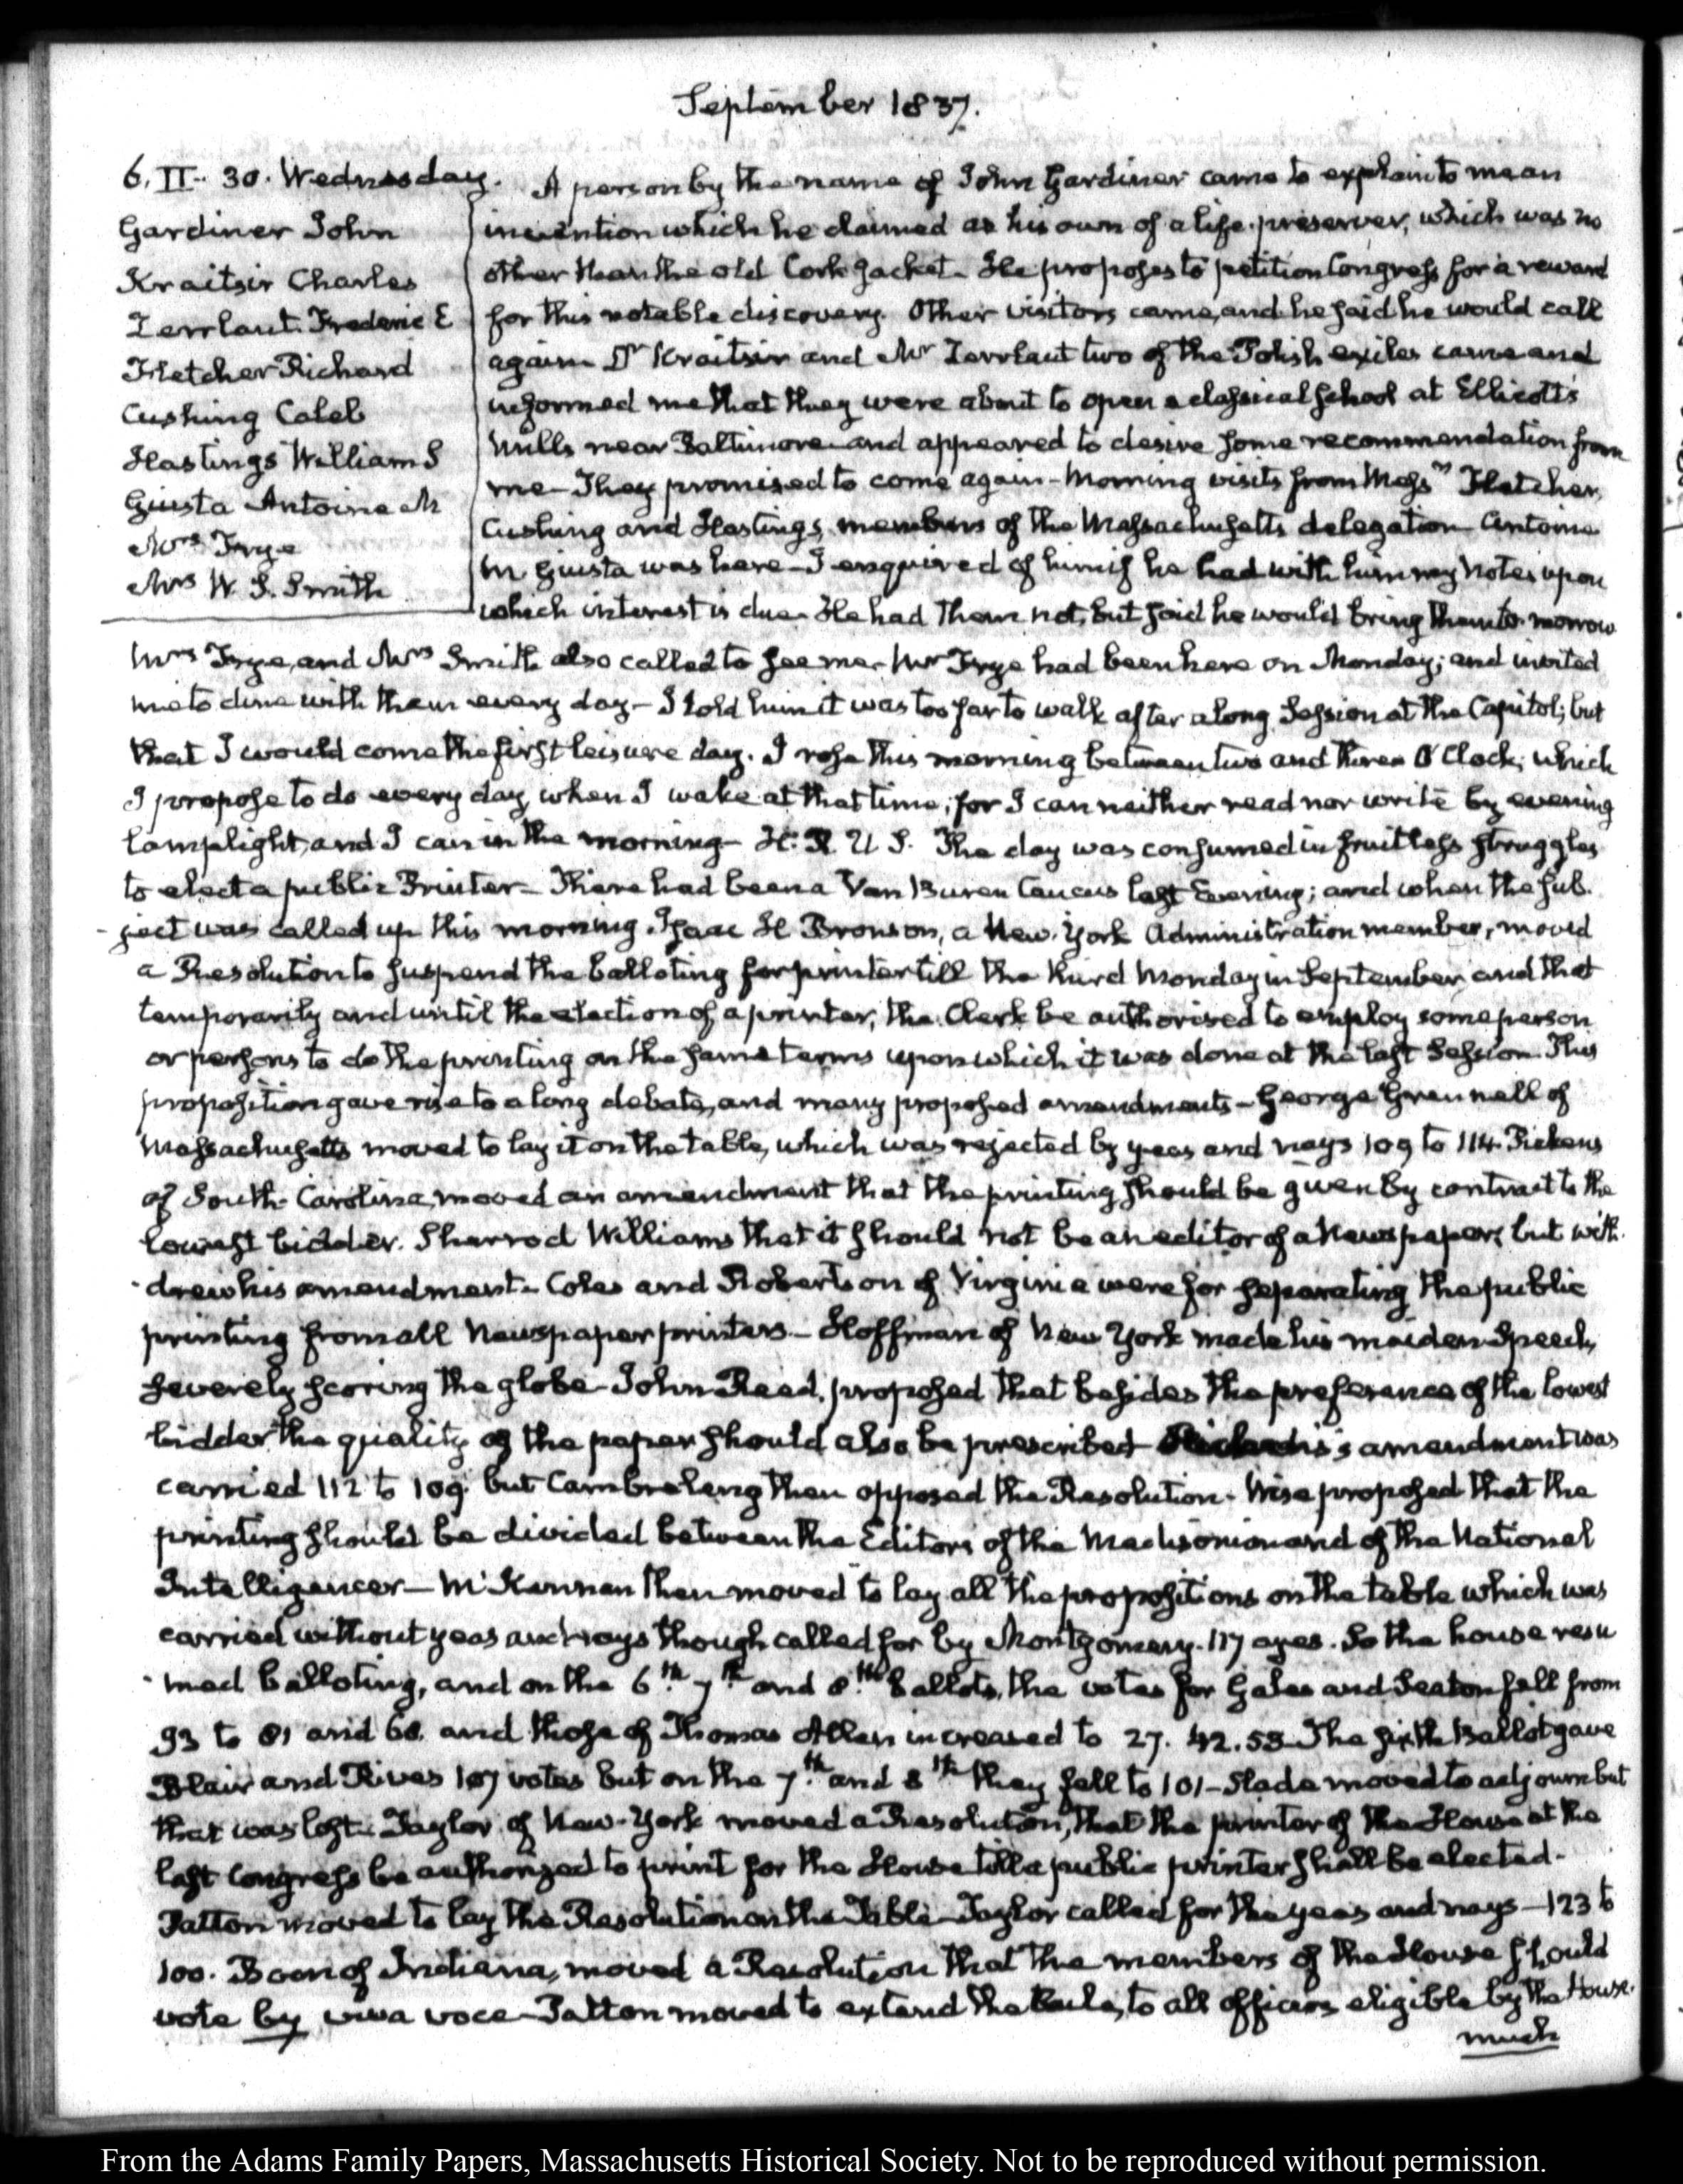 September 1837.
6. II.. 30. Wednesday. A person by the name of John Gardiner came to explain to me an
Gardiner John
Kraitsir Charles
Zerrlaut Frederic E
Fletcher Richard
Cushing Caleb
Hastings William S
Giusta Antoine M
Mrs Frye
Mrs W. S. Smith
invention which he claimed as his own of a life-preserver, which was no
other than the old Cork Jacket. He proposes to petition Congress for a reward
for this notable discovery. Other visitors came, and he said he would call
again Dr Kraitsir and Mr Zerrlaut two of the Polish exiles came and
informed me that they were about to open a classical school at Ellicott's
Mills near Baltimore and appeared to desire some recommendation from
me— They promised to come again— Morning visits from Messrs Fletcher,
Cushing and Hastings, members of the Massachusetts delegation Antoine
M Giusta was here— I enquired of him if he had with him my Notes upon
which interest is due. He had them not, but said he would bring them to-morrow
Mrs Frye, and Mrs Smith also called to see me. Mr Frye had been here on Monday; and invited
me to dine with them every day— I told him it was too far to walk after a long Session at the Capitol; but
that I would come the first leisure day. I rose this morning between two and three O'Clock; which
I propose to do every day, when I wake at that time, for I can neither read nor write by evening
lamplight, and I can in the morning— H. R. U. S. The day was consumed in fruitless struggles
to elect a public Printer— There had been a Van Buren Caucus last Evening; and when the sub-
-ject was called up this morning, Isaac H Bronson, a New-York Administration member, moved
a Resolution to suspend the balloting for printer till the third Monday in September, and that
temporarily and until the election of a printer, the Clerk be authorised to employ some person
or persons to do the printing on the same terms upon which it was done at the last Session. This
proposition gave rise to a long debate, and many proposed amendments— George Grennell of
Massachusetts moved to lay it on the table, which was rejected by yeas and nays 109 to 114. Pickens
of South-Carolina, moved an amendment that the printing should be given by contract to the
lowest bidder. Sharrod Williams that it should not be an editor of a Newspaper; but with-
-drew his amendment— Coles and Robertson of Virginia were for separating the public
printing from all Newspaper printers— Hoffman of New York made his maiden Speech,
severely scoring the globe— John Reed, proposed that besides the preference of the lowest
bidder the quality of the paper should also be prescribed— 's amendment was
carried 112 to 109. but Cambreleng then opposed the Resolution— Wise proposed that the
printing should be divided between the Editors of the Madisonian and of the National
Intelligencer— McKennan then moved to lay all the propositions on the table which was
carried without yeas and nays though called for by Montgomery. 117 ayes. So the house resu
-med balloting, and on the 6th 7th and 8th Ballots, the votes for Gales and Seaton fell from
93 to 81 and 68. and those of Thomas Allen increased to 27. 42. 53— The sixth Ballot gave
Blair and Rives 107 votes but on the 7th and 8th they fell to 101— Slade moved to adjourn but
that was lost— Taylor of New-York moved a Resolution, that the printer of the House at the
last Congress be authorized to print for the House till a public printer shall be elected—
Patton moved to lay the Resolution on the Table— Taylor called for the yeas and nays— 123 to
100. Boon of Indiana, moved a Resolution that the members of the House should
vote by viva voce— Patton moved to extend the rule, to all officers eligible by the House.
much
From the Adams Family Papers, Massachusetts Historical Society. Not to be reproduced without permission.